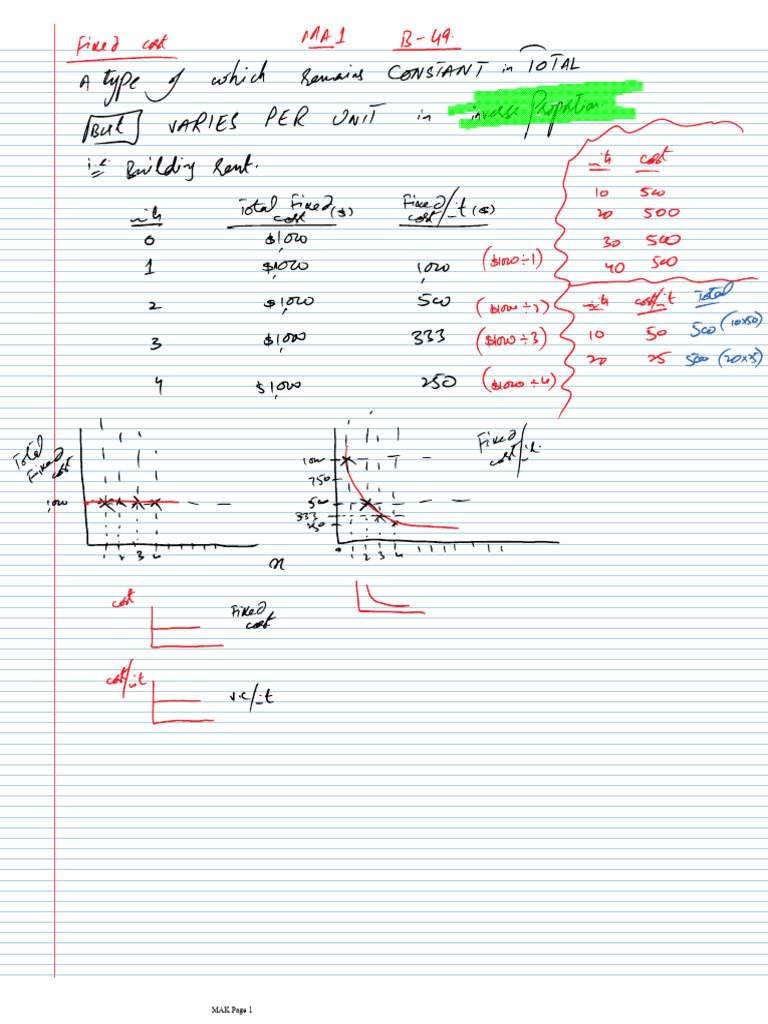 Fixed cost MA1 B-49.
A type of which remains CONSTANT in TOTAL
But VARIES PER UNIT in inverse Proportion
i.e. Building Rent.
units Total Fixed cost ($) Fixed cost/unit ($)
0 $1,000
1 $1,000 1,000 ($1000÷1)
2 $1,000 500 ($1000÷2)
3 $1,000 333 ($1000÷3)
4 $1,000 250 ($1000÷4)
units cost
10 500
20 500
30 500
40 500
units cost/unit Total
10 50 500 (10x50)
20 25 500 (20x25)
Total Fixed cost
1,000
1 2 3 4
x
Fixed cost/unit
1000
750
500
333
250
0 1 2 3 4
cost Fixed cost
cost/unit v.c/unit
MAK Page 1